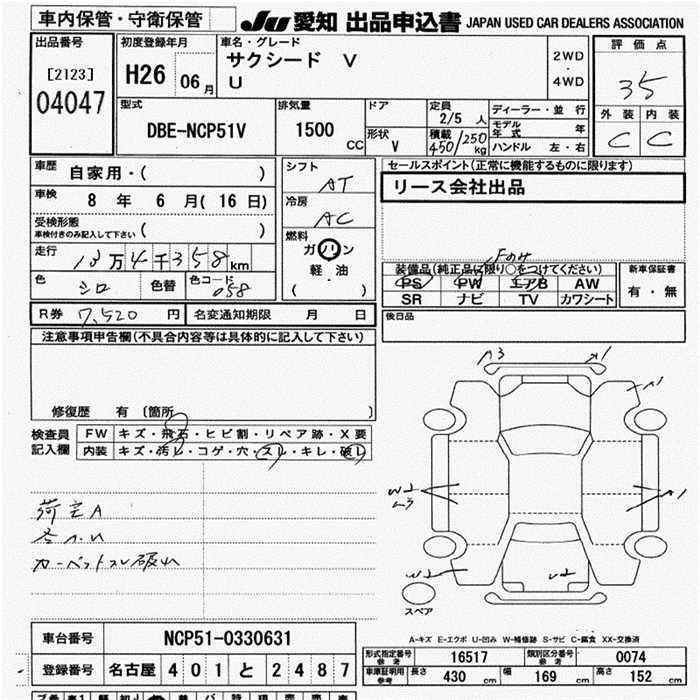 車内保管・守衛保管
JU 愛知 出品申込書 JAPAN USED CAR DEALERS ASSOCIATION
出品番号
[2123]
04047
初度登録年月
H26 06月
車名・グレード
サクシード V
U
2WD
・
4WD
評価点
35
外装 内装
C C
型式
DBE-NCP51V
排気量
1500 CC
ドア
形状
V
定員
2/5 人
積載
450/250 kg
ディーラー・並行
モデル年式 年
ハンドル 左・右
車歴 自家用・( )
車検 8 年 6 月( 16 日)
受検形態
車検付きのみ記入して下さい ( )
走行 13万4千358km
色 シロ 色替 色コード 058
シフト
AT
冷房
AC
燃料
ガソリン
・
軽油
( )
セールスポイント(正常に機能するものに限ります)
リース会社出品
Fのみ
装備品(純正品に限り○をつけてください)
PS PW エアB AW
SR ナビ TV カワシート
新車保証書
有・無
R券 7,520 円 名変通知期限 月 日
後日品
注意事項申告欄(不具合内容等は具体的に記入して下さい)
修復歴 有 〔箇所 〕
検査員
記入欄
FW キズ・飛石・ヒビ割・リペア跡・X要
内装 キズ・汚レ・コゲ・穴・スレ・キレ・破レ
A3 A1
A1
W2
A1
W2 U2
スペア
荷室A
カーペットスレ破れ
A-キズ E-エクボ U-凹み W-補修跡 S-サビ C-腐食 XX-交換済
車台番号 NCP51-0330631
登録番号 名古屋 401 と 2487
形式指定番号 参考 16517 類別区分番号 参考 0074
車庫証明用 参考 長さ 430 cm 幅 169 cm 高さ 152 cm